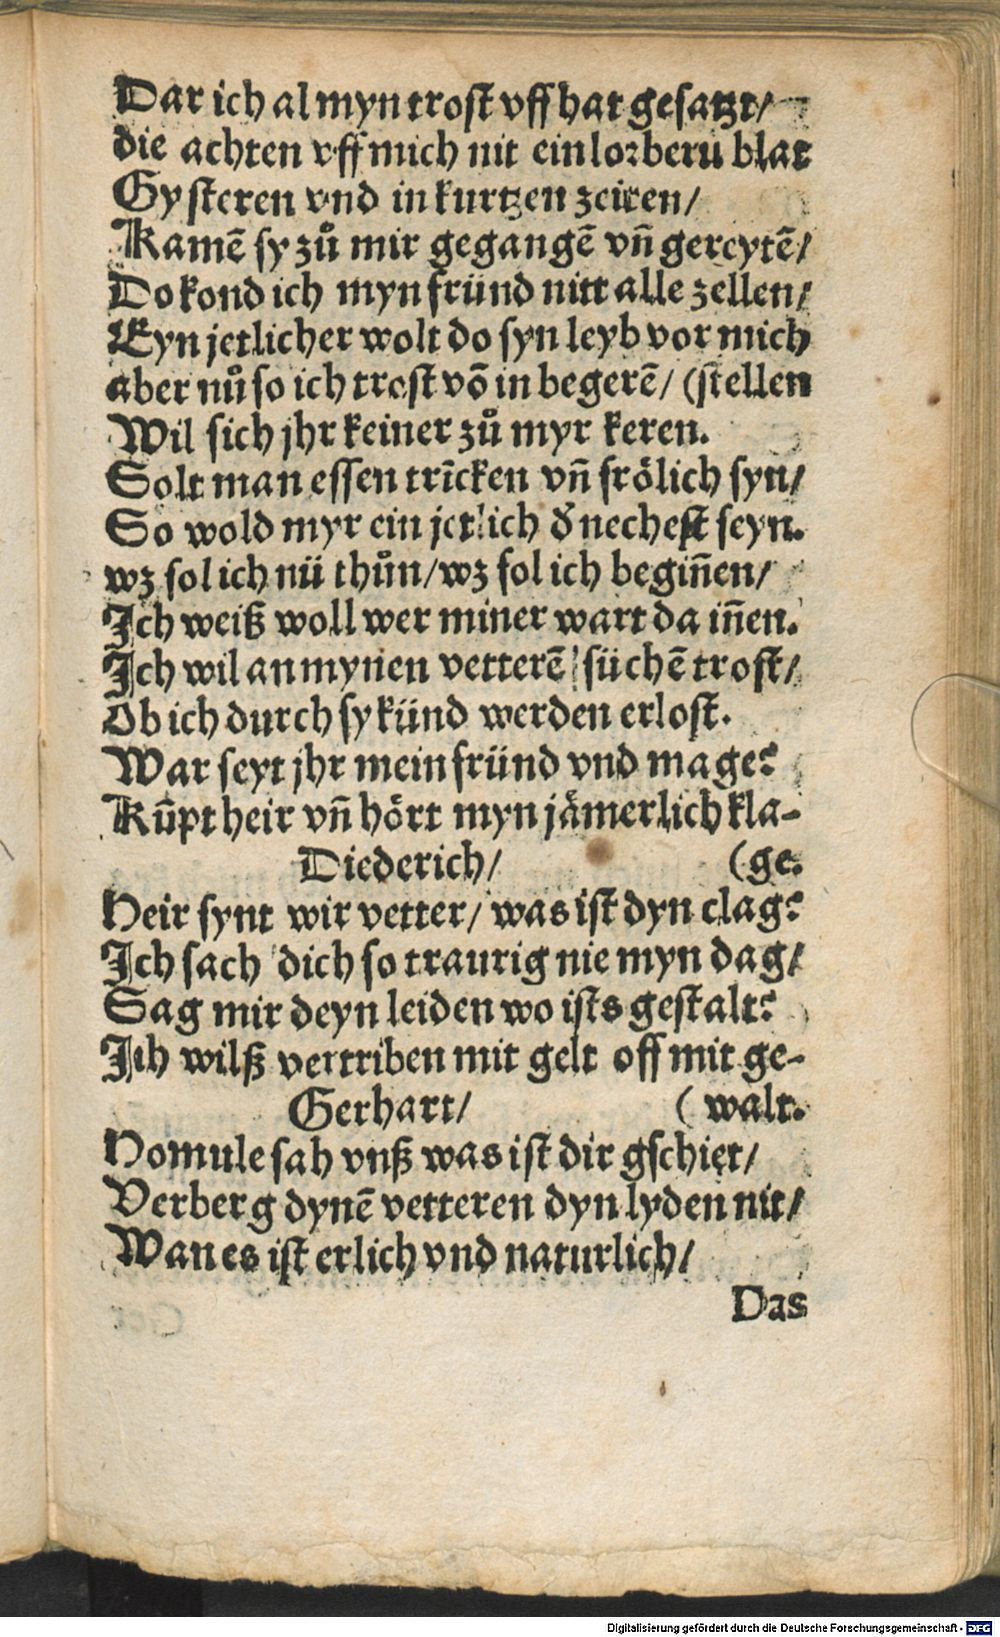 Dar ich al myn trost vff hat gesatzt/
die achten vff mich nit ein lorberu blat
Gysteren vnd in kurtzen zeiten/
Kamē sy zů mir gegangē vñ gereytē/
Do kond ich myn fründ nitt alle zellen/
Eyn jetlicher wolt do syn leyb vor mich
aber nů so ich trost vō in begerē/ (stellen
Wil sich jhr keiner zů myr keren.
Solt man essen trīcken vñ frölich syn/
So wold myr ein jetlich d̓ nechest seyn.
wz sol ich nü thůn/wz sol ich begiñen/
Ich weiß woll wer miner wart da iñen.
Ich wil an mynen vetterē süchē trost/
Ob ich durch sy künd werden erlost.
War seyt jhr mein fründ vnd mage?
Kūpt heir vñ hört myn jämerlich kla-
Diederich/ (ge.
Heir synt wir vetter/ was ist dyn clag?
Ich sach dich so traurig nie myn dag/
Sag mir deyn leiden wo ists gestalt?
Ich wilß vertriben mit gelt off mit ge-
Gerhart/ (walt.
Homule sah vnß was ist dir gschiet/
Verberg dynē vetteren dyn lyden nit/
Wan es ist erlich vnd naturlich/
Das
Digitalisierung gefördert durch die Deutsche Forschungsgemeinschaft - DFG